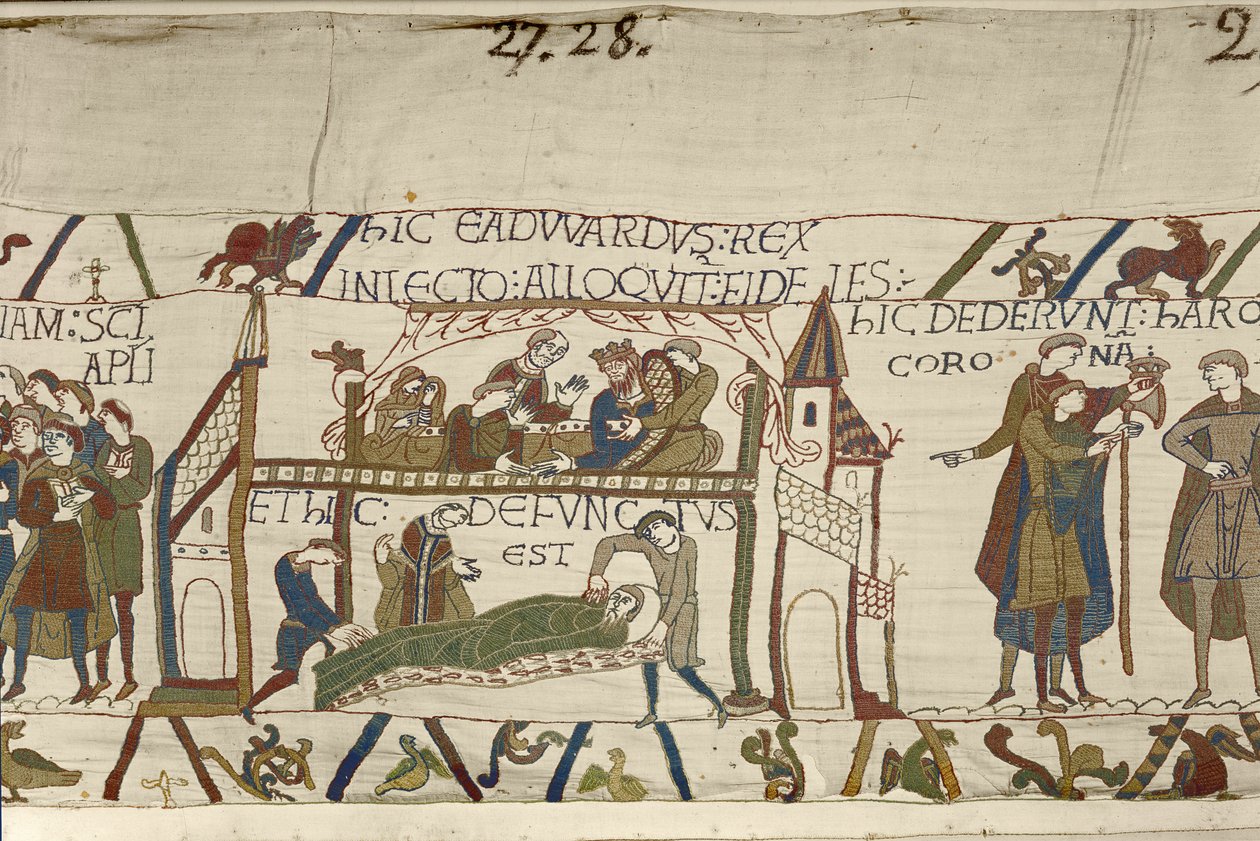 27. 28.
2
hIC EADVVARDVS: REX
IN LECTO: ALLOQVIT: FIDELES:-
IAM: SCI
APLI
hIC DEDERVNT: hARO
CORONA:
ET hIC: DEFVNCTVS
EST